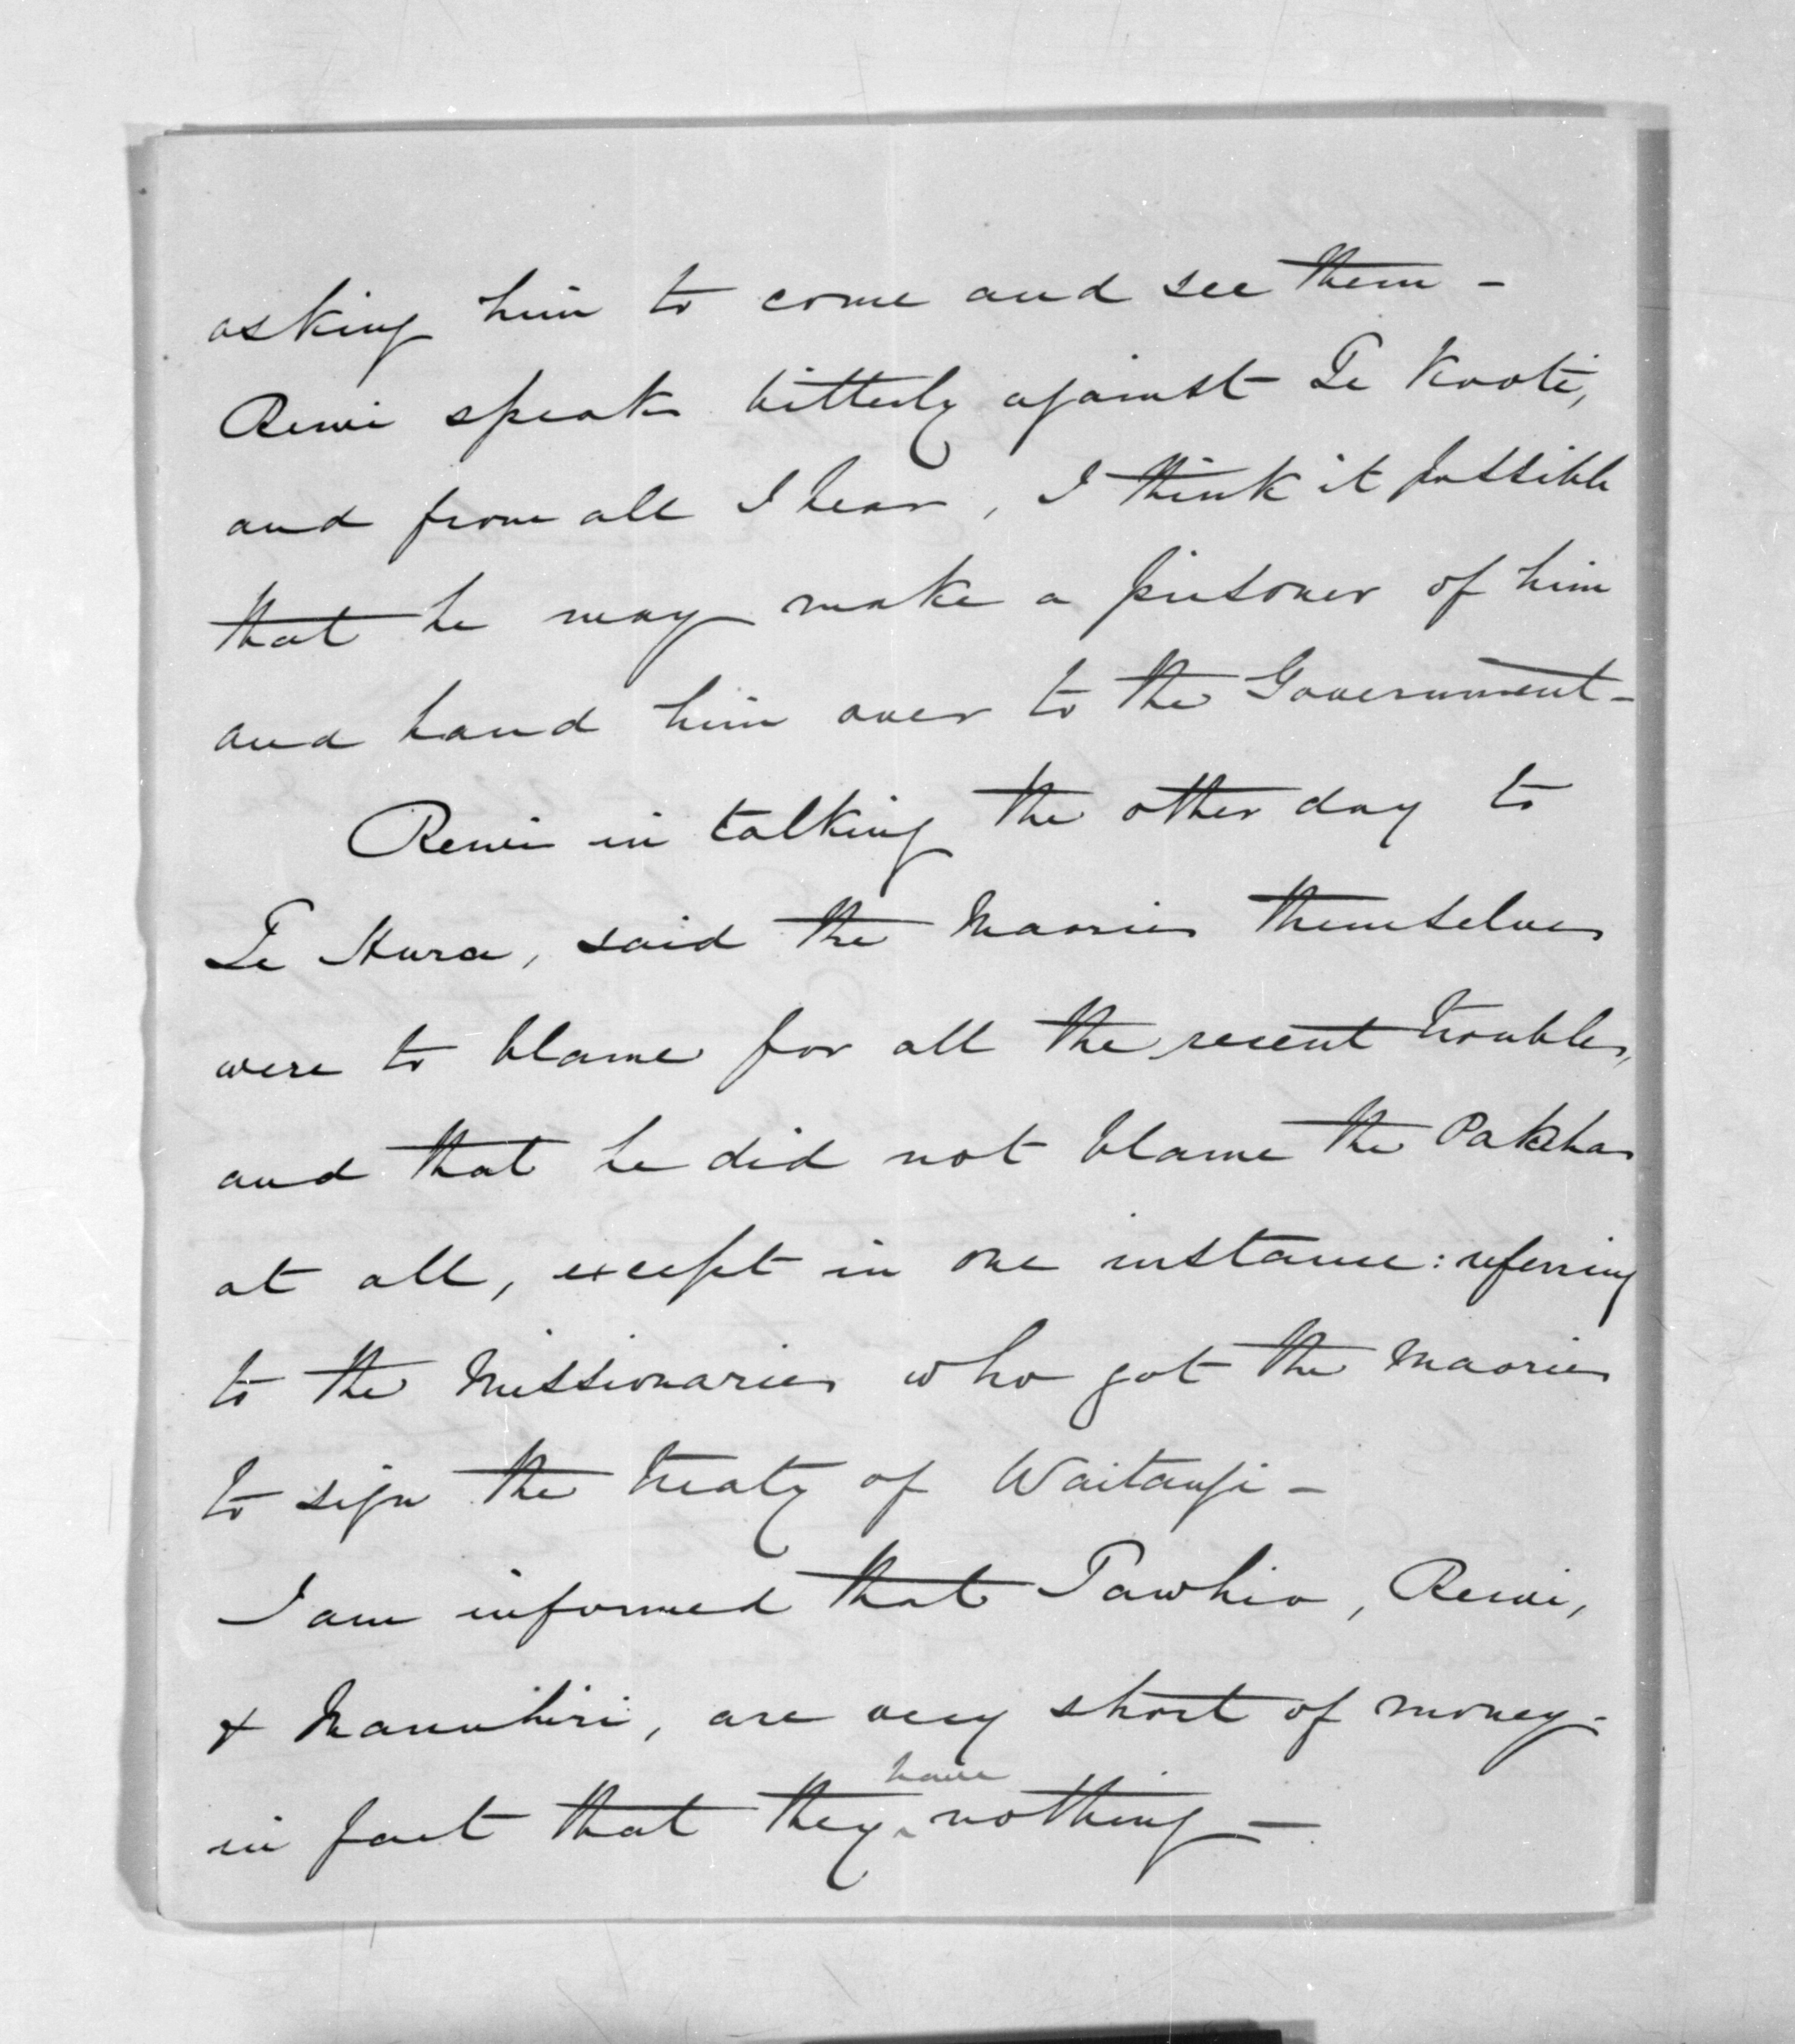 asking him to come and see them -
Rewi speaks bitterly against Te Kooti,
and from all I hear, I think it possible
that he may make a prisoner of him
and hand him over to the Government -
Rewi in talking the other day to
Te Hura, said the Maories themselves
were to blame for all the recent troubles,
and that he did not blame the Pakehas
at all, except in one instance: referring
to the Missionaries who got the Maories
to sign the treaty of Waitangi -
I am informed that Tawhio, Rewi,
& Manuhiri, are very short of money -
in fact that they have nothing -